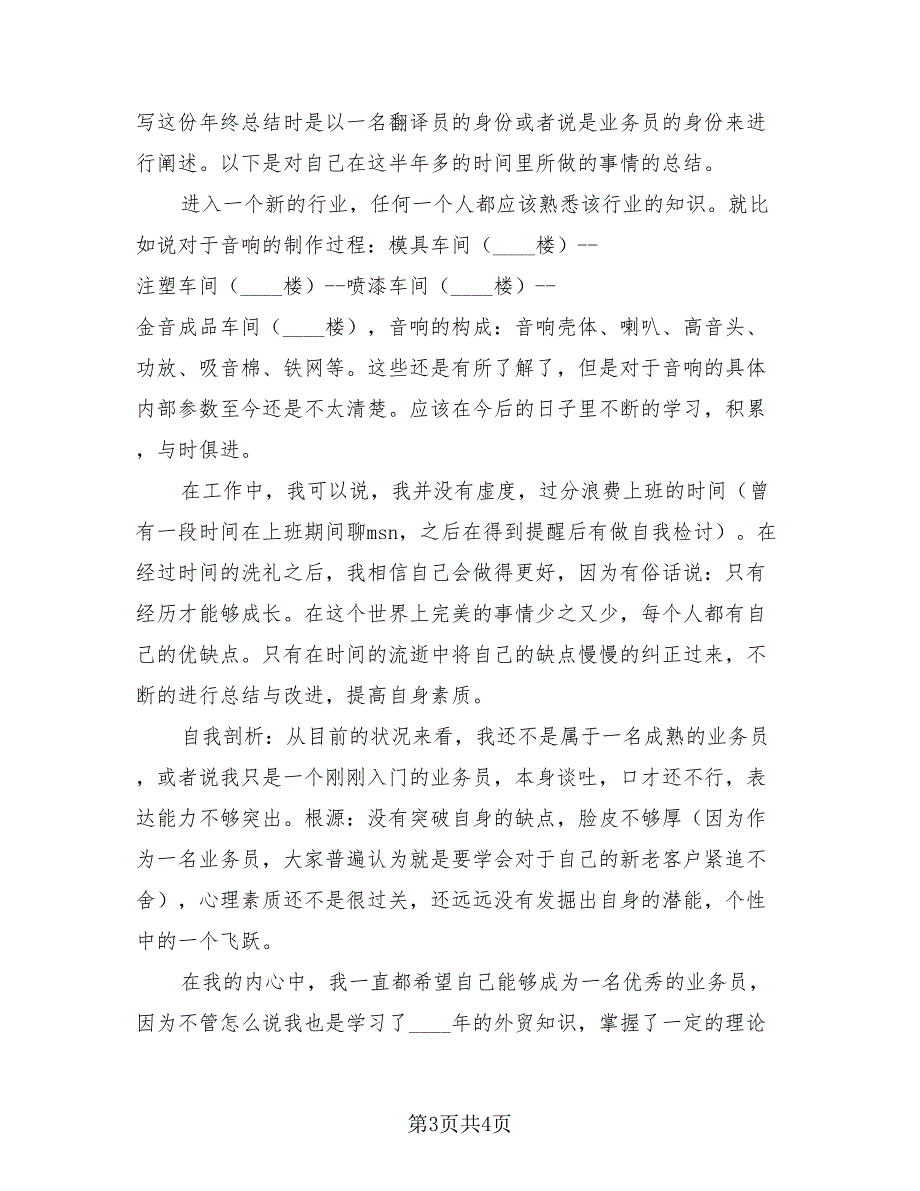 写这份年终总结时是以一名翻译员的身份或者说是业务员的身份来进
行阐述。以下是对自己在这半年多的时间里所做的事情的总结。
进入一个新的行业，任何一个人都应该熟悉该行业的知识。就比
如说对于音响的制作过程：模具车间（____楼）--
注塑车间（____楼）--喷漆车间（____楼）--
金音成品车间（____楼），音响的构成：音响壳体、喇叭、高音头、
功放、吸音棉、铁网等。这些还是有所了解了，但是对于音响的具体
内部参数至今还是不太清楚。应该在今后的日子里不断的学习，积累
，与时俱进。
在工作中，我可以说，我并没有虚度，过分浪费上班的时间（曾
有一段时间在上班期间聊msn，之后在得到提醒后有做自我检讨）。在
经过时间的洗礼之后，我相信自己会做得更好，因为有俗话说：只有
经历才能够成长。在这个世界上完美的事情少之又少，每个人都有自
己的优缺点。只有在时间的流逝中将自己的缺点慢慢的纠正过来，不
断的进行总结与改进，提高自身素质。
自我剖析：从目前的状况来看，我还不是属于一名成熟的业务员
，或者说我只是一个刚刚入门的业务员，本身谈吐，口才还不行，表
达能力不够突出。根源：没有突破自身的缺点，脸皮不够厚（因为作
为一名业务员，大家普遍认为就是要学会对于自己的新老客户紧追不
舍），心理素质还不是很过关，还远远没有发掘出自身的潜能，个性
中的一个飞跃。
在我的内心中，我一直都希望自己能够成为一名优秀的业务员，
因为不管怎么说我也是学习了____年的外贸知识，掌握了一定的理论
第3页共4页